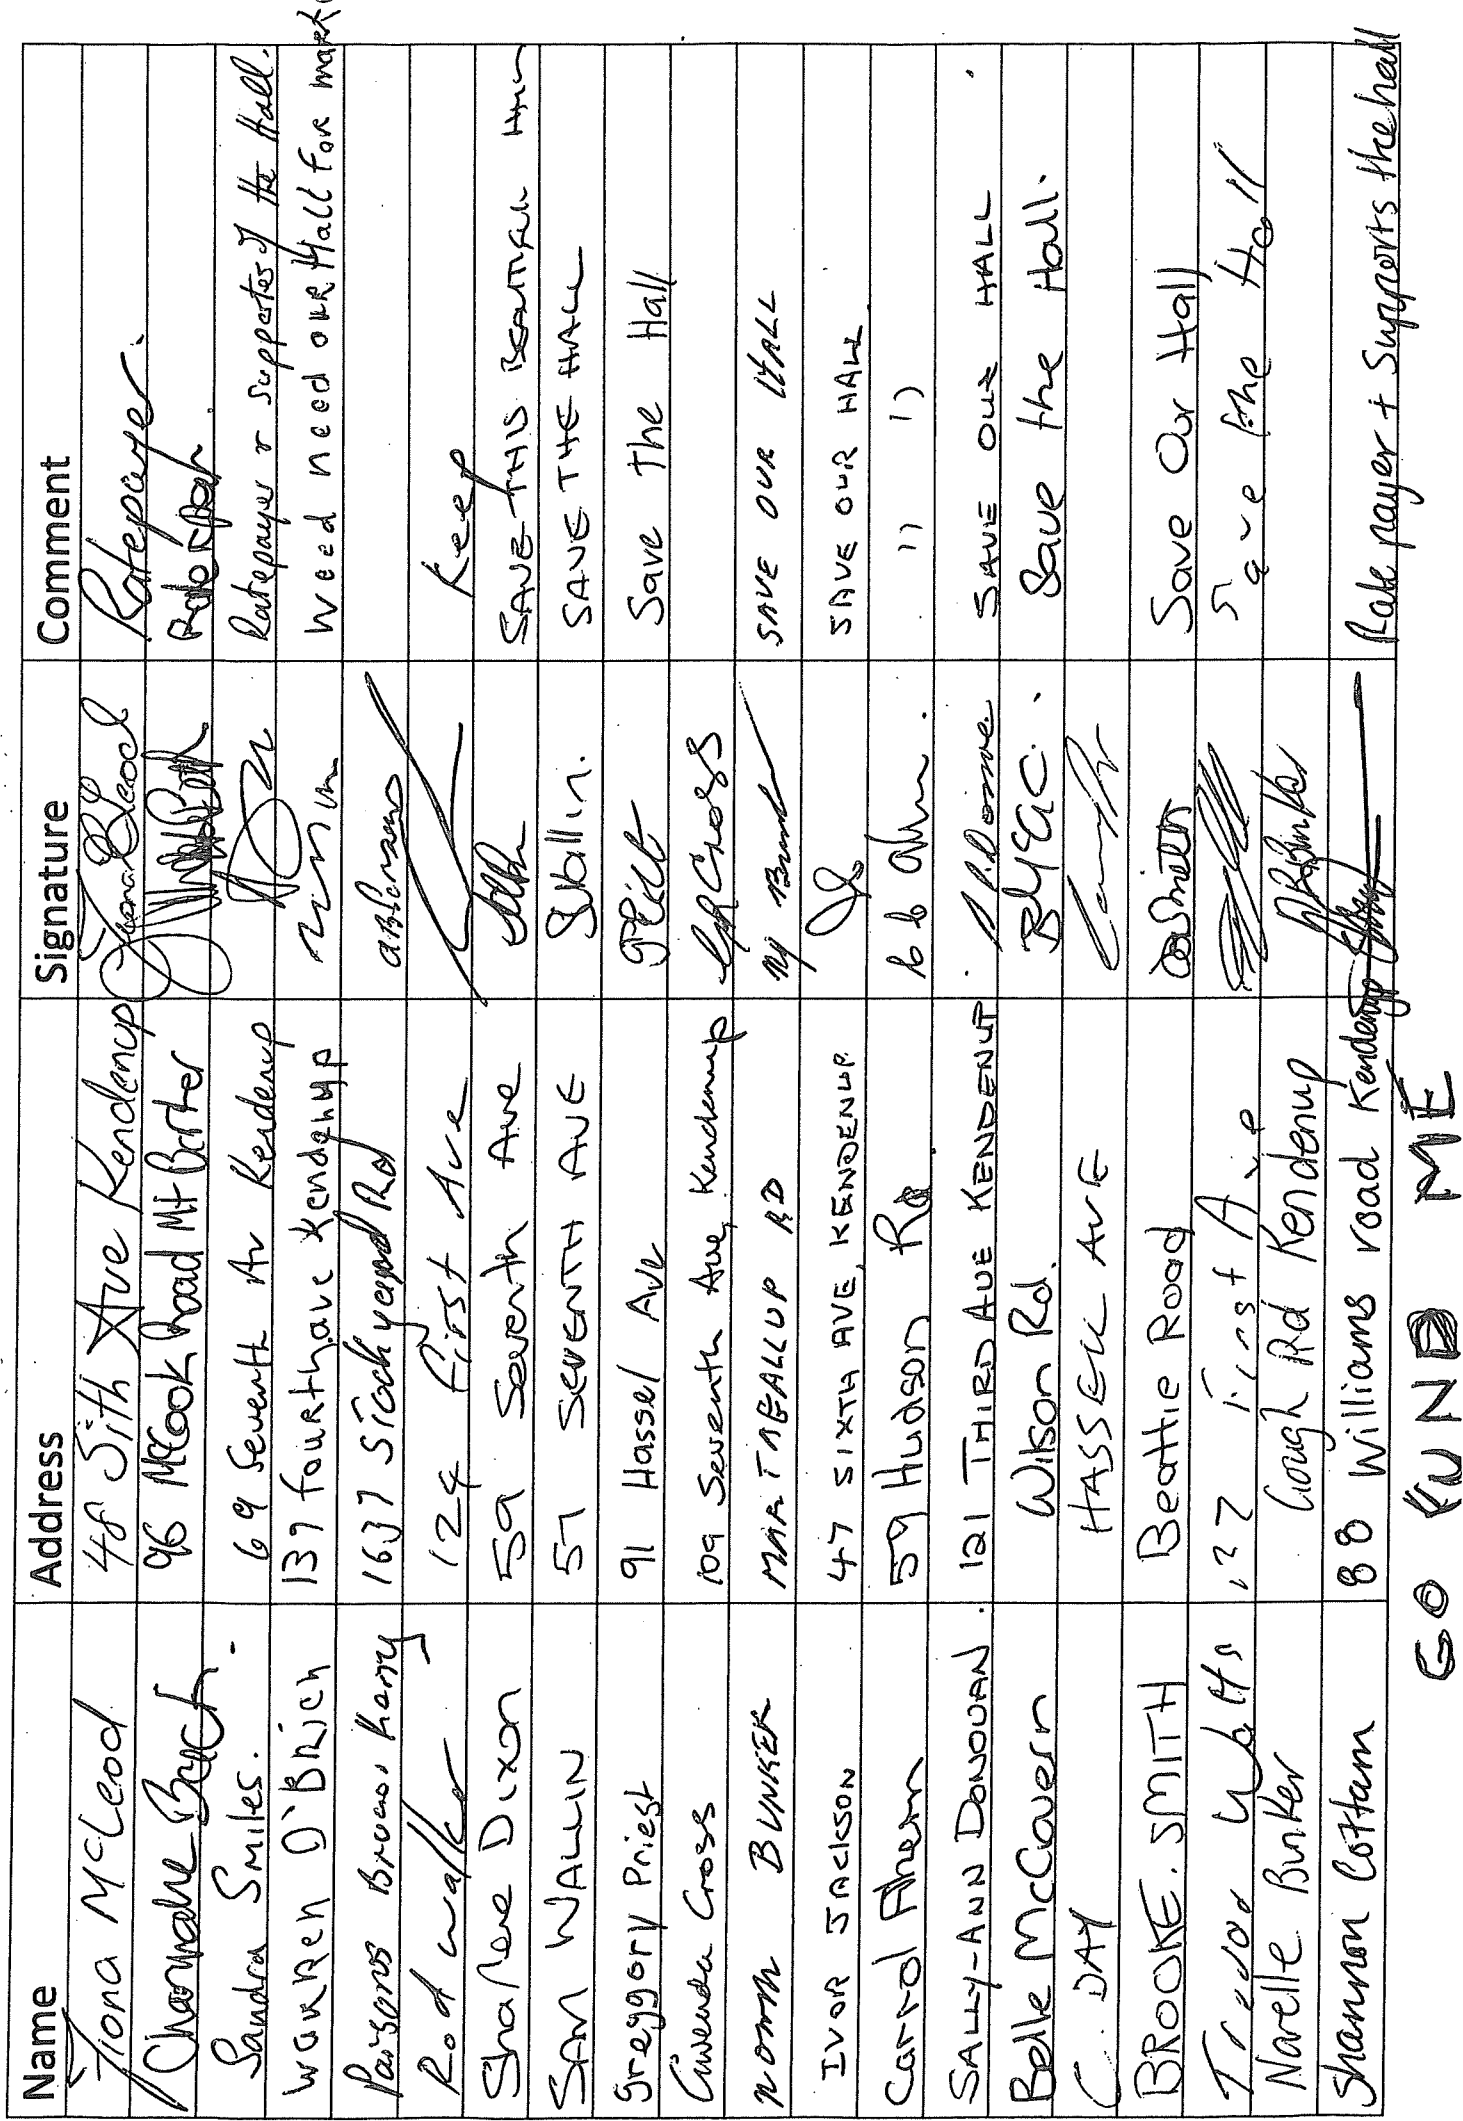 Name Address Signature Comment
Fiona McLeod 48 Sith Ave Kendenup Ratepayer.
96 McCook Road Mt Barker
Sandra Smiles. 69 Seventh Av Kendenup Ratepayer & supporter of the Hall.
WARREN O'BRICH 137 fourth ave Kendenup Weed need OUR Hall FOR
Parsons 1637
Rod Walker 124 First Ave Keep
Sharlene Dixon 59 Seventh Ave SAVE THIS BEAUTIFUL
SAM WALLIN 57 SEVENTH AVE SWallin. SAVE THE HALL
Greggory Priest 91 Hassel Ave Save The Hall
Gwenda Cross 109 Seventh Ave, Kendenup GR Cross
NORM BUNKER RD SAVE OUR HALL
IVOR JACKSON 47 SIXTH AVE, KENDENUP SAVE OUR HALL
Carrol Ahern 59 Hudson Rd " "
SALLY-ANN DONOVAN. 121 THIRD AVE KENDENUP SAVE OUR HALL.
Belle McGavern Wilson Rd. Save the Hall.
C. DAY HASSELL AVE
BROOKE. SMITH Beattie Road Save Our Hall
Watts 127 First Ave Save the Hall
Narelle Bunker Gough Rd Kendenup
Shannon Cottam 88 Williams road Kendenup Rate payer + Supports the hall
GO FUND ME